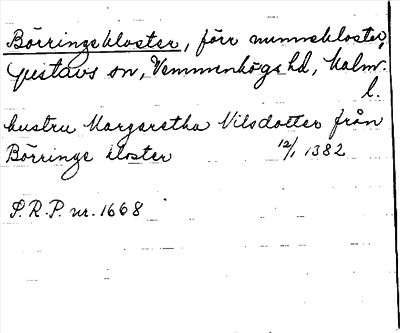 Börringekloster, förr nunnekloster,
Gustavs sn, Vemmenhögs hd, Malm.
l.
hustru Margaretha Nilsdotter från
Börringe kloster 12/1 1382
S.R.P. nr. 1668